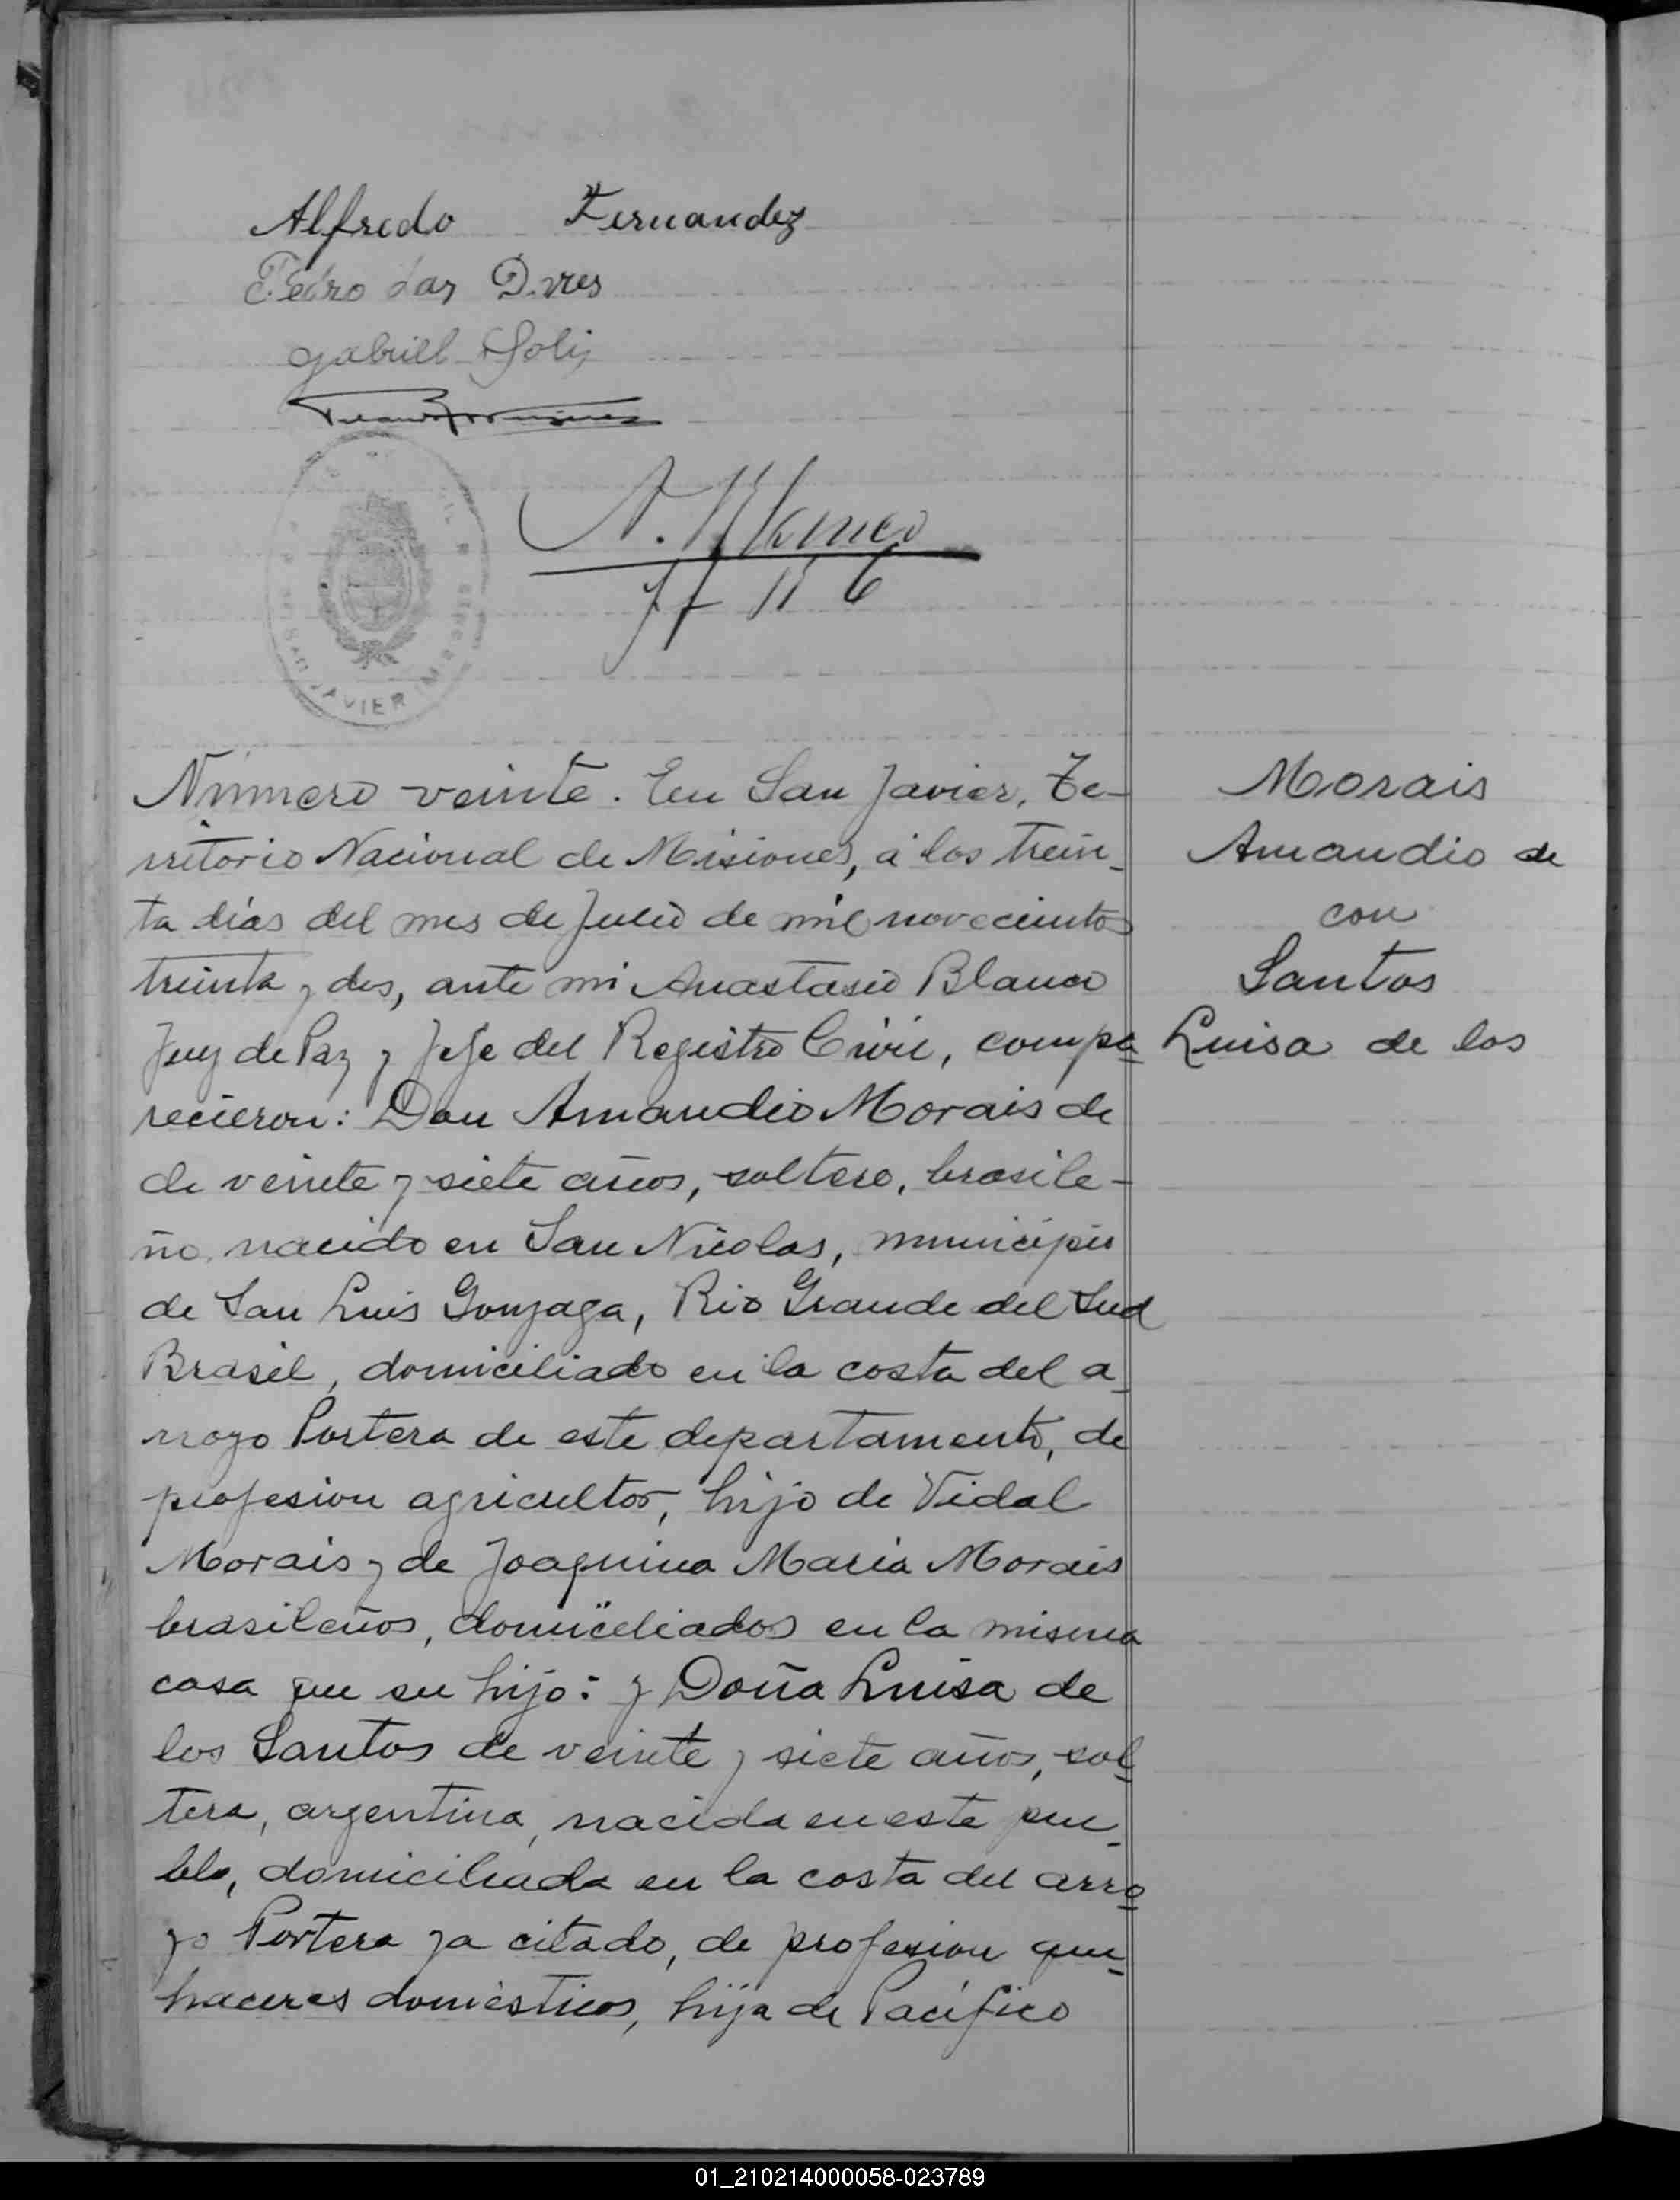 Alfredo Fernandez
Pedro das
Gabriel Solis
A. Blanco
JAVIER
Número veinte. En San Javier, Te-
rritorio Nacional de Misiones, á los trein-
ta días del mes de Julio de mil novecientos
treinta y dos, ante mi Anastasio Blanco
Juez de Paz y Jefe del Registro Civil, compa-
recieron: Don Amandio Morais de
de veinte y siete años, soltero, brasile-
ño nacido en San Nicolas, municipio
de San Luis Gonzaga, Rio Grande del Sud
Brasil, domiciliado en la costa del a-
rroyo Portera de este departamento, de
profesion agricultor, hijo de Vidal
Morais y de Joaquina Maria Morais
brasileños, domiciliados en la misma
casa que su hijo: y Doña Luisa de
los Santos de veinte y siete años, sol-
tera, argentina, nacida en este pue-
blo, domiciliada en la costa del arro-
yo Portera ya citado, de profesion que-
haceres domésticos, hija de Pacífico
Morais
Amandio de
con
Santos
Luisa de los
01_210214000058-023789